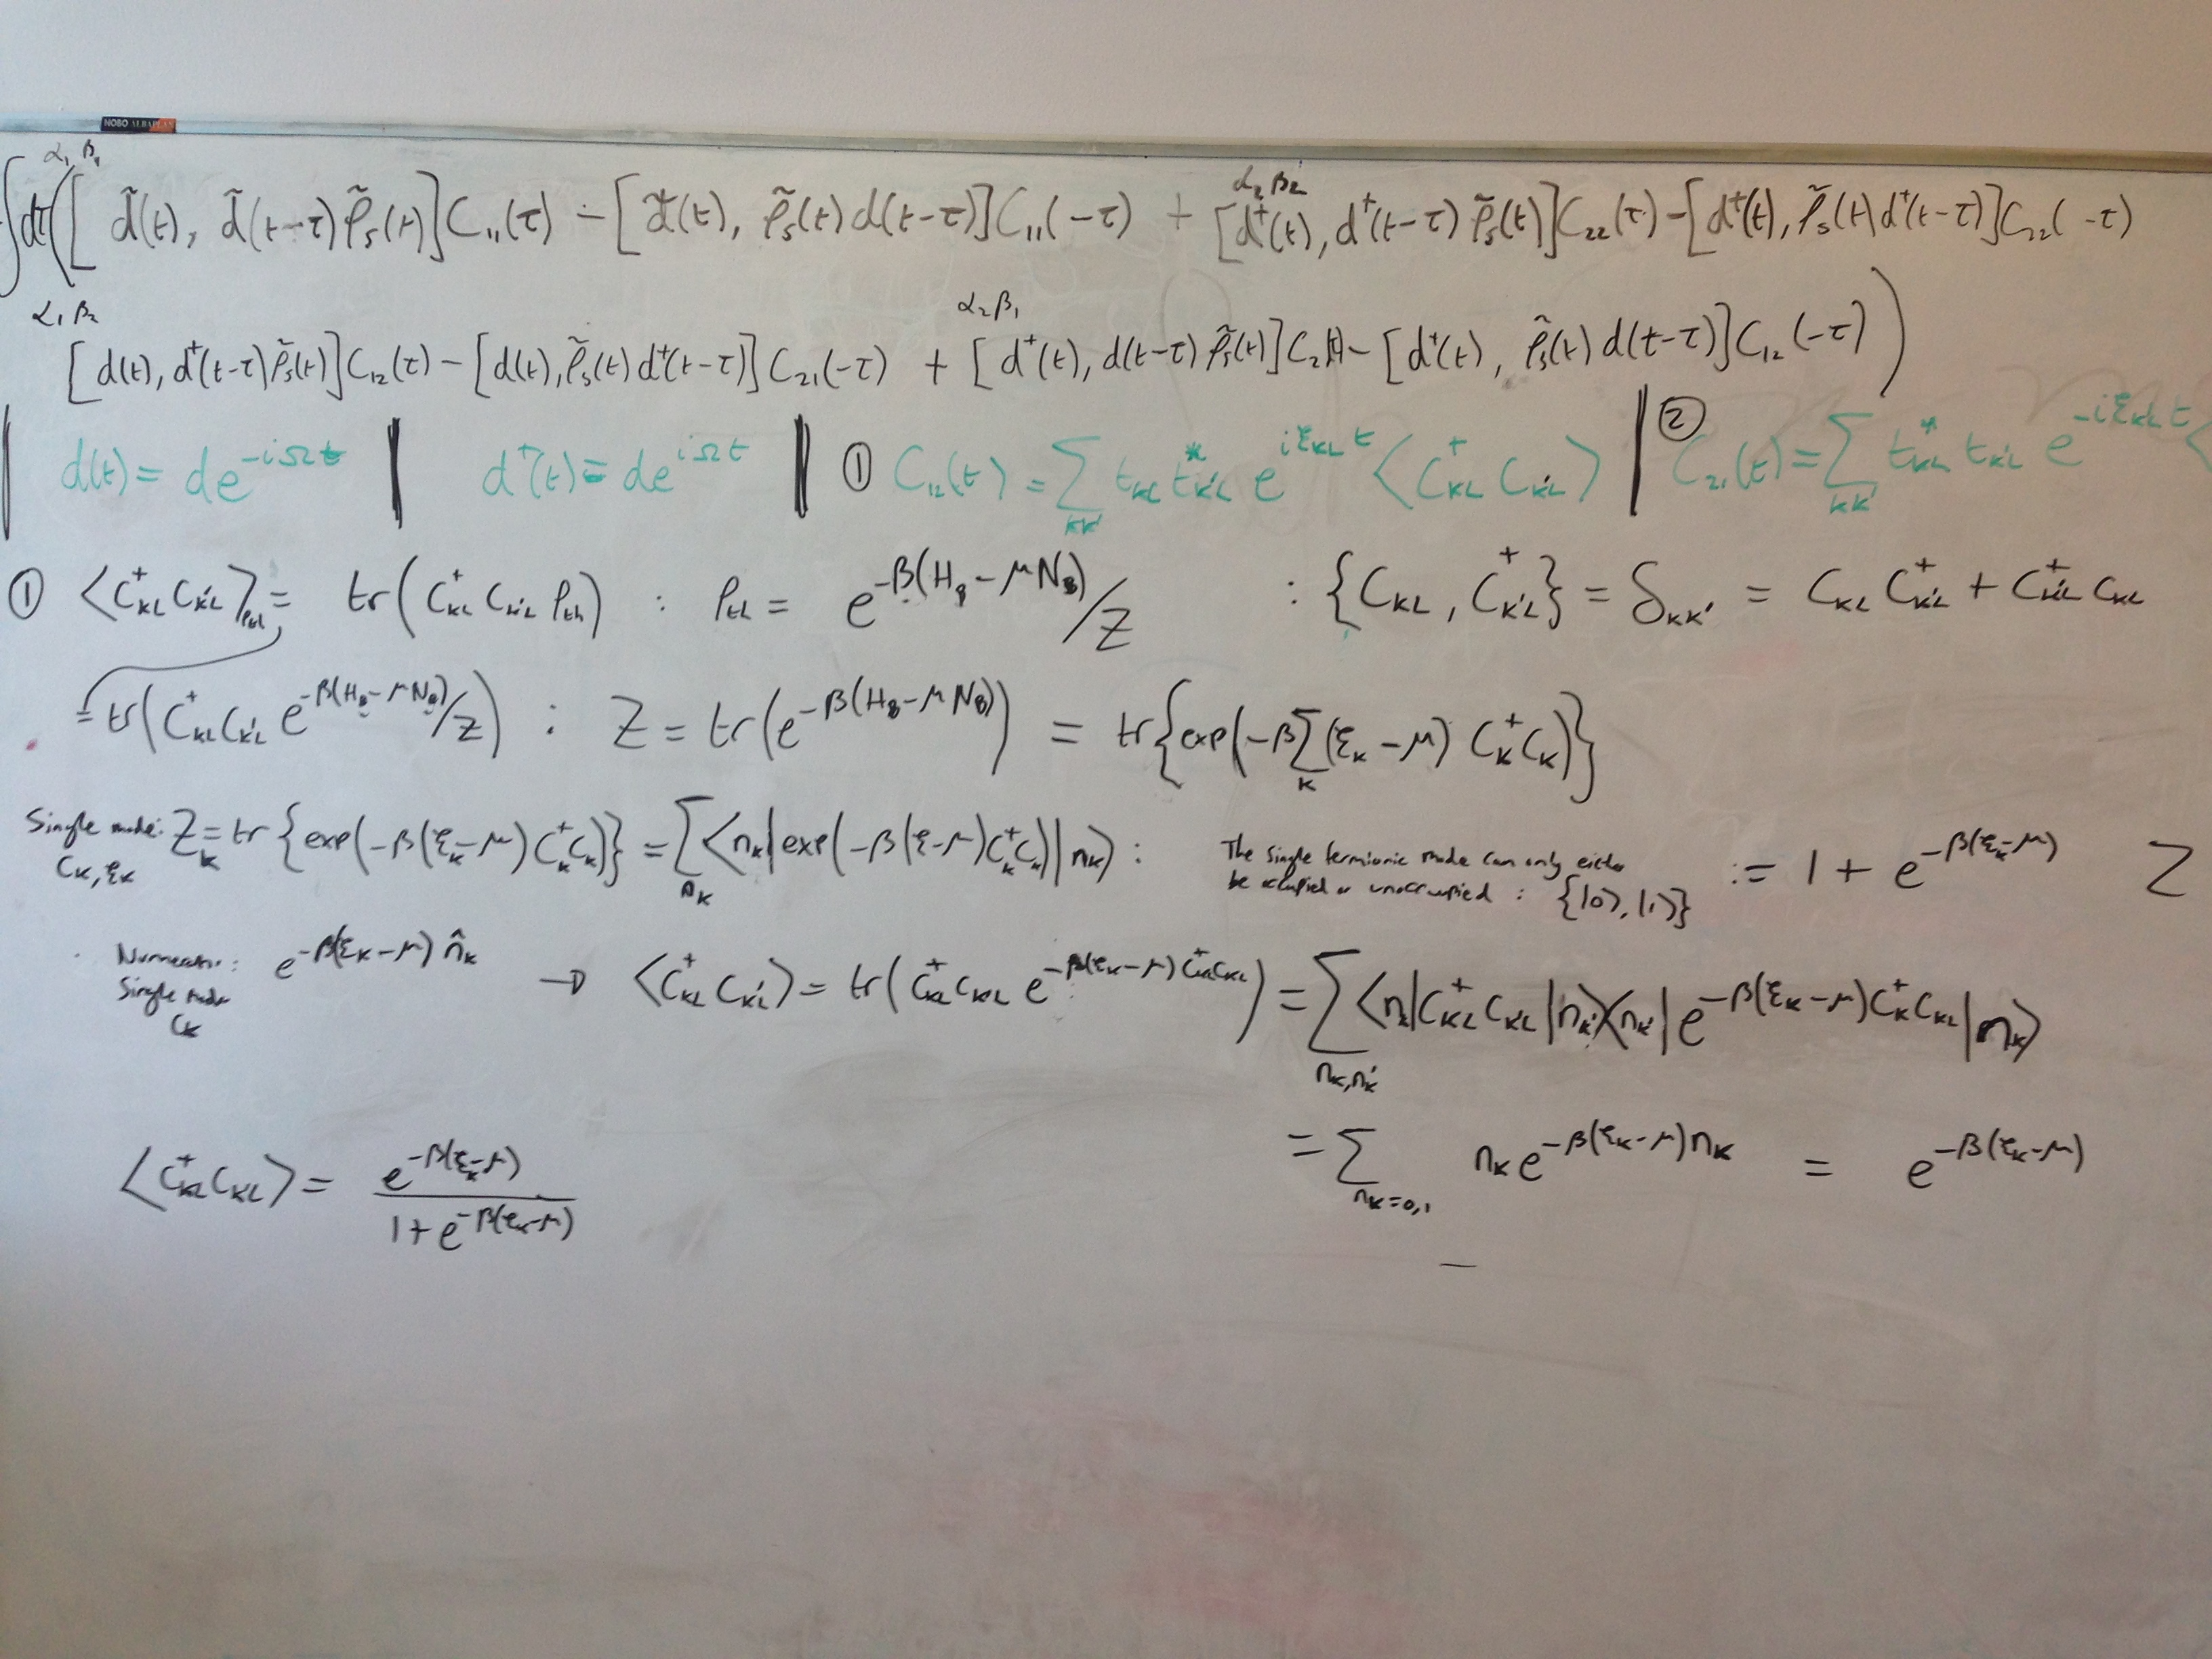 NOBO
α₁ β₁
α₂ β₂
∫dτ([d̃(t), d̃(t-τ)ρ̃ₛ(t)]C₁₁(τ) - [d̃(t), ρ̃ₛ(t)d(t-τ)]C₁₁(-τ) + [d⁺(t), d⁺(t-τ)ρ̃ₛ(t)]C₂₂(τ) - [d⁺(t), ρ̃ₛ(t)d⁺(t-τ)]C₂₂(-τ)
α₁ β₂
α₂ β₁
[d(t), d⁺(t-τ)ρ̃ₛ(t)]C₁₂(τ) - [d(t), ρ̃ₛ(t)d⁺(t-τ)]C₂₁(-τ) + [d⁺(t), d(t-τ)ρ̃ₛ(t)]C₂₁ - [d⁺(t), ρ̃ₛ(t)d(t-τ)]C₁₂(-τ))
| d(t) = de^{-iΩt} | d⁺(t) = de^{iΩt} | ① C₁₂(t) = Σ_{kk'} t_{kL} t*_{k'L} e^{iξ_{kL}t} ⟨C⁺_{kL} C_{k'L}⟩ | ② C₂₁(t) = Σ_{kk'} t*_{kL} t_{k'L} e^{-iξ_{kL}t} ⟨
① ⟨C⁺_{kL} C_{k'L}⟩_{ρth} = tr(C⁺_{kL} C_{k'L} ρ_{th}) : ρ_{th} = e^{-β(H_B - μN_B)}/Z : {C_{kL}, C⁺_{k'L}} = δ_{kk'} = C_{kL} C⁺_{k'L} + C⁺_{k'L} C_{kL}
= tr(C⁺_{kL} C_{k'L} e^{-β(H_B - μN_B)}/Z) : Z = tr(e^{-β(H_B - μN_B)}) = tr{exp(-βΣ_k(ξ_k - μ) C⁺_k C_k)}
Single mode: C_k, ξ_k Z_k = tr{exp(-β(ξ_k - μ)C⁺_k C_k)} = Σ_{n_k} ⟨n_k|exp(-β(ξ - μ)C⁺_k C_k)|n_k⟩ : The single fermionic mode can only either be occupied or unoccupied : {|0⟩, |1⟩} := 1 + e^{-β(ξ_k - μ)} Z
Numerator: Single mode C_k e^{-β(ξ_k - μ) n̂_k} → ⟨C⁺_{kL} C_{k'L}⟩ = tr(C⁺_{kL} C_{kL} e^{-β(ξ_k - μ) C⁺_{kL} C_{kL}}) = Σ_{n_k, n_k'} ⟨n_k|C⁺_{kL} C_{kL}|n_k'⟩⟨n_k'|e^{-β(ξ_k - μ)C⁺_k C_{kL}}|n_k⟩
= Σ_{n_k=0,1} n_k e^{-β(ξ_k - μ)n_k} = e^{-β(ξ_k - μ)}
⟨C⁺_{kL} C_{kL}⟩ = e^{-β(ξ_k - μ)} / 1 + e^{-β(ξ_k - μ)}